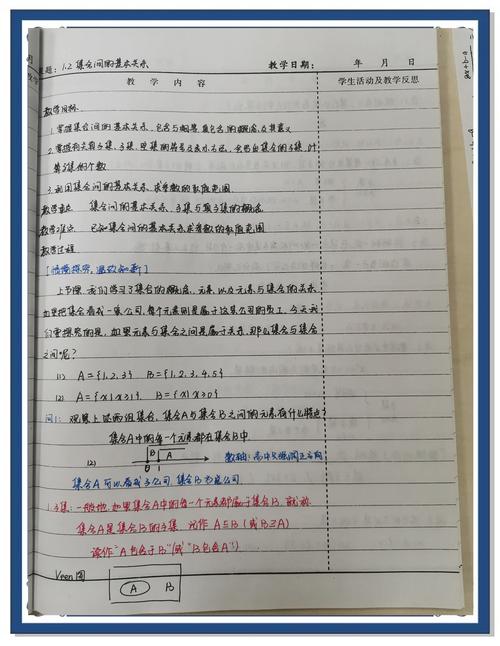 课题：1.2 集合间的基本关系 教学日期： 年 月 日
教 学 内 容 学生活动及教学反思
教学目标
1. 掌握集合间的基本关系，包含与相等、真包含的概念及其意义
3. 利用集合间的基本关系，求参数的取值范围
教学重点 集合间的基本关系、子集与真子集的概念
教学难点 已知集合间的基本关系求参数的取值范围
教学过程
[情境探究，温故知新]
上节课，我们学习了集合的概念，元素，以及元素与集合的关系，
如果把集合看成一家公司，每个元素则是属于这家公司的员工，今天我
们要探究的是，如果元素与集合之间是属于关系，那么集合与集合
之间呢？
(1) A={1,2,3} B={1,2,3,4,5}
(2) A={x|x≥1} B={x|x≥0}
问1：观察上述两组集合，集合A与集合B之间的元素有什么特点？
集合A中的每一个元素都在集合B中
(2) B A 0 1 数轴：高中只强调正方向
集合A可以看成子公司，集合B为总公司
1.子集：一般地，如果集合A中的每一个元素都属于集合B，就称
集合A是集合B的子集，记作 A⊆B（或B⊇A）
读作“A包含于B”（或“B包含A”）
Veen图
A B